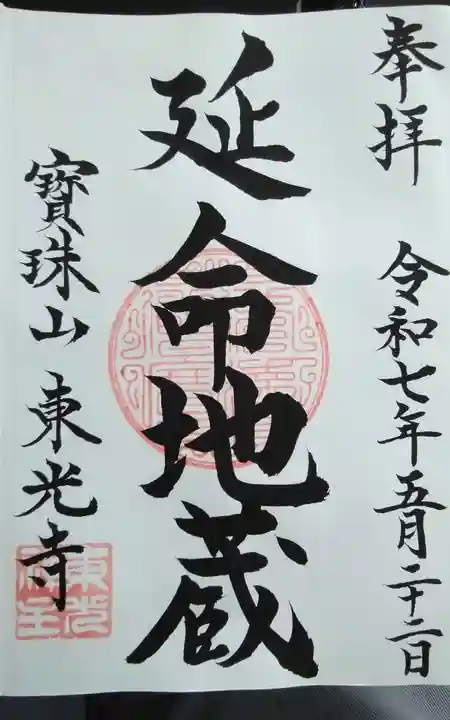 奉拝 令和七年五月二十二日
延命地蔵
寳珠山 東光寺